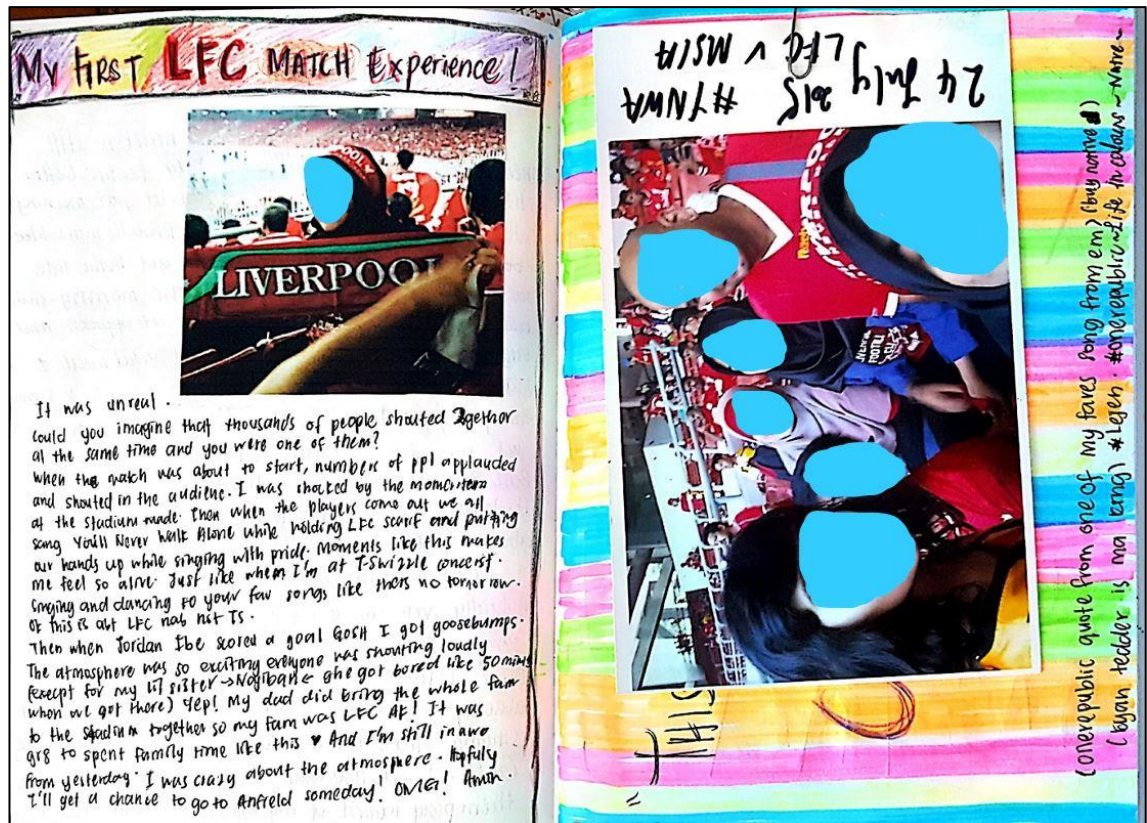 My FIRST LFC MATCH Experience!
LIVERPOOL
It was unreal.
Could you imagine that thousands of people shouted 2gether
at the same time and you were one of them?
When the match was about to start, numbers of ppl applauded
and shouted in the audience. I was shocked by the
at the stadium made. Then when the players come out we all
sang You'll Never Walk Alone while holding LFC scarf and putting
our hands up while singing with pride. Moments like this makes
me feel so alive. Just like when I'm at T-Swizzle concert.
Singing and dancing to your fav songs like thers no tomorrow.
this is abt LFC nab not TS.
Then when Jordan Ibe scored a goal GOSH I got goosebumps.
The atmosphere was so exciting everyone was shouting loudly
(except for my lil sister → ← she got bored like 50 mins
when we got there) Yep! My dad did bring the whole fam
to the stadium together so my fam was LFC AF! It was
gr8 to spent family time like this ♥ And I'm still in awe
from yesterday. I was crazy about the atmosphere. Hopfuly
I'll get a chance to go to Anfield someday! OMG!
24 July 2015 #YNWA
LFC v MSIA
THIS
(onerepublic quote from one of my faves song from em)
(ryan tedder is ma king) #onerepublic~Life in colours~Native~